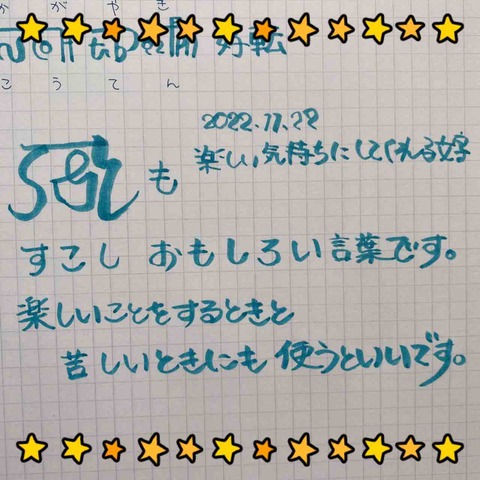 かがやき
好転
こうてん
2022.11.22
楽しい気持ちにしてくれる文字
も
すこし おもしろい言葉です。
楽しいことをするときと
苦しいときにも 使うといいです。